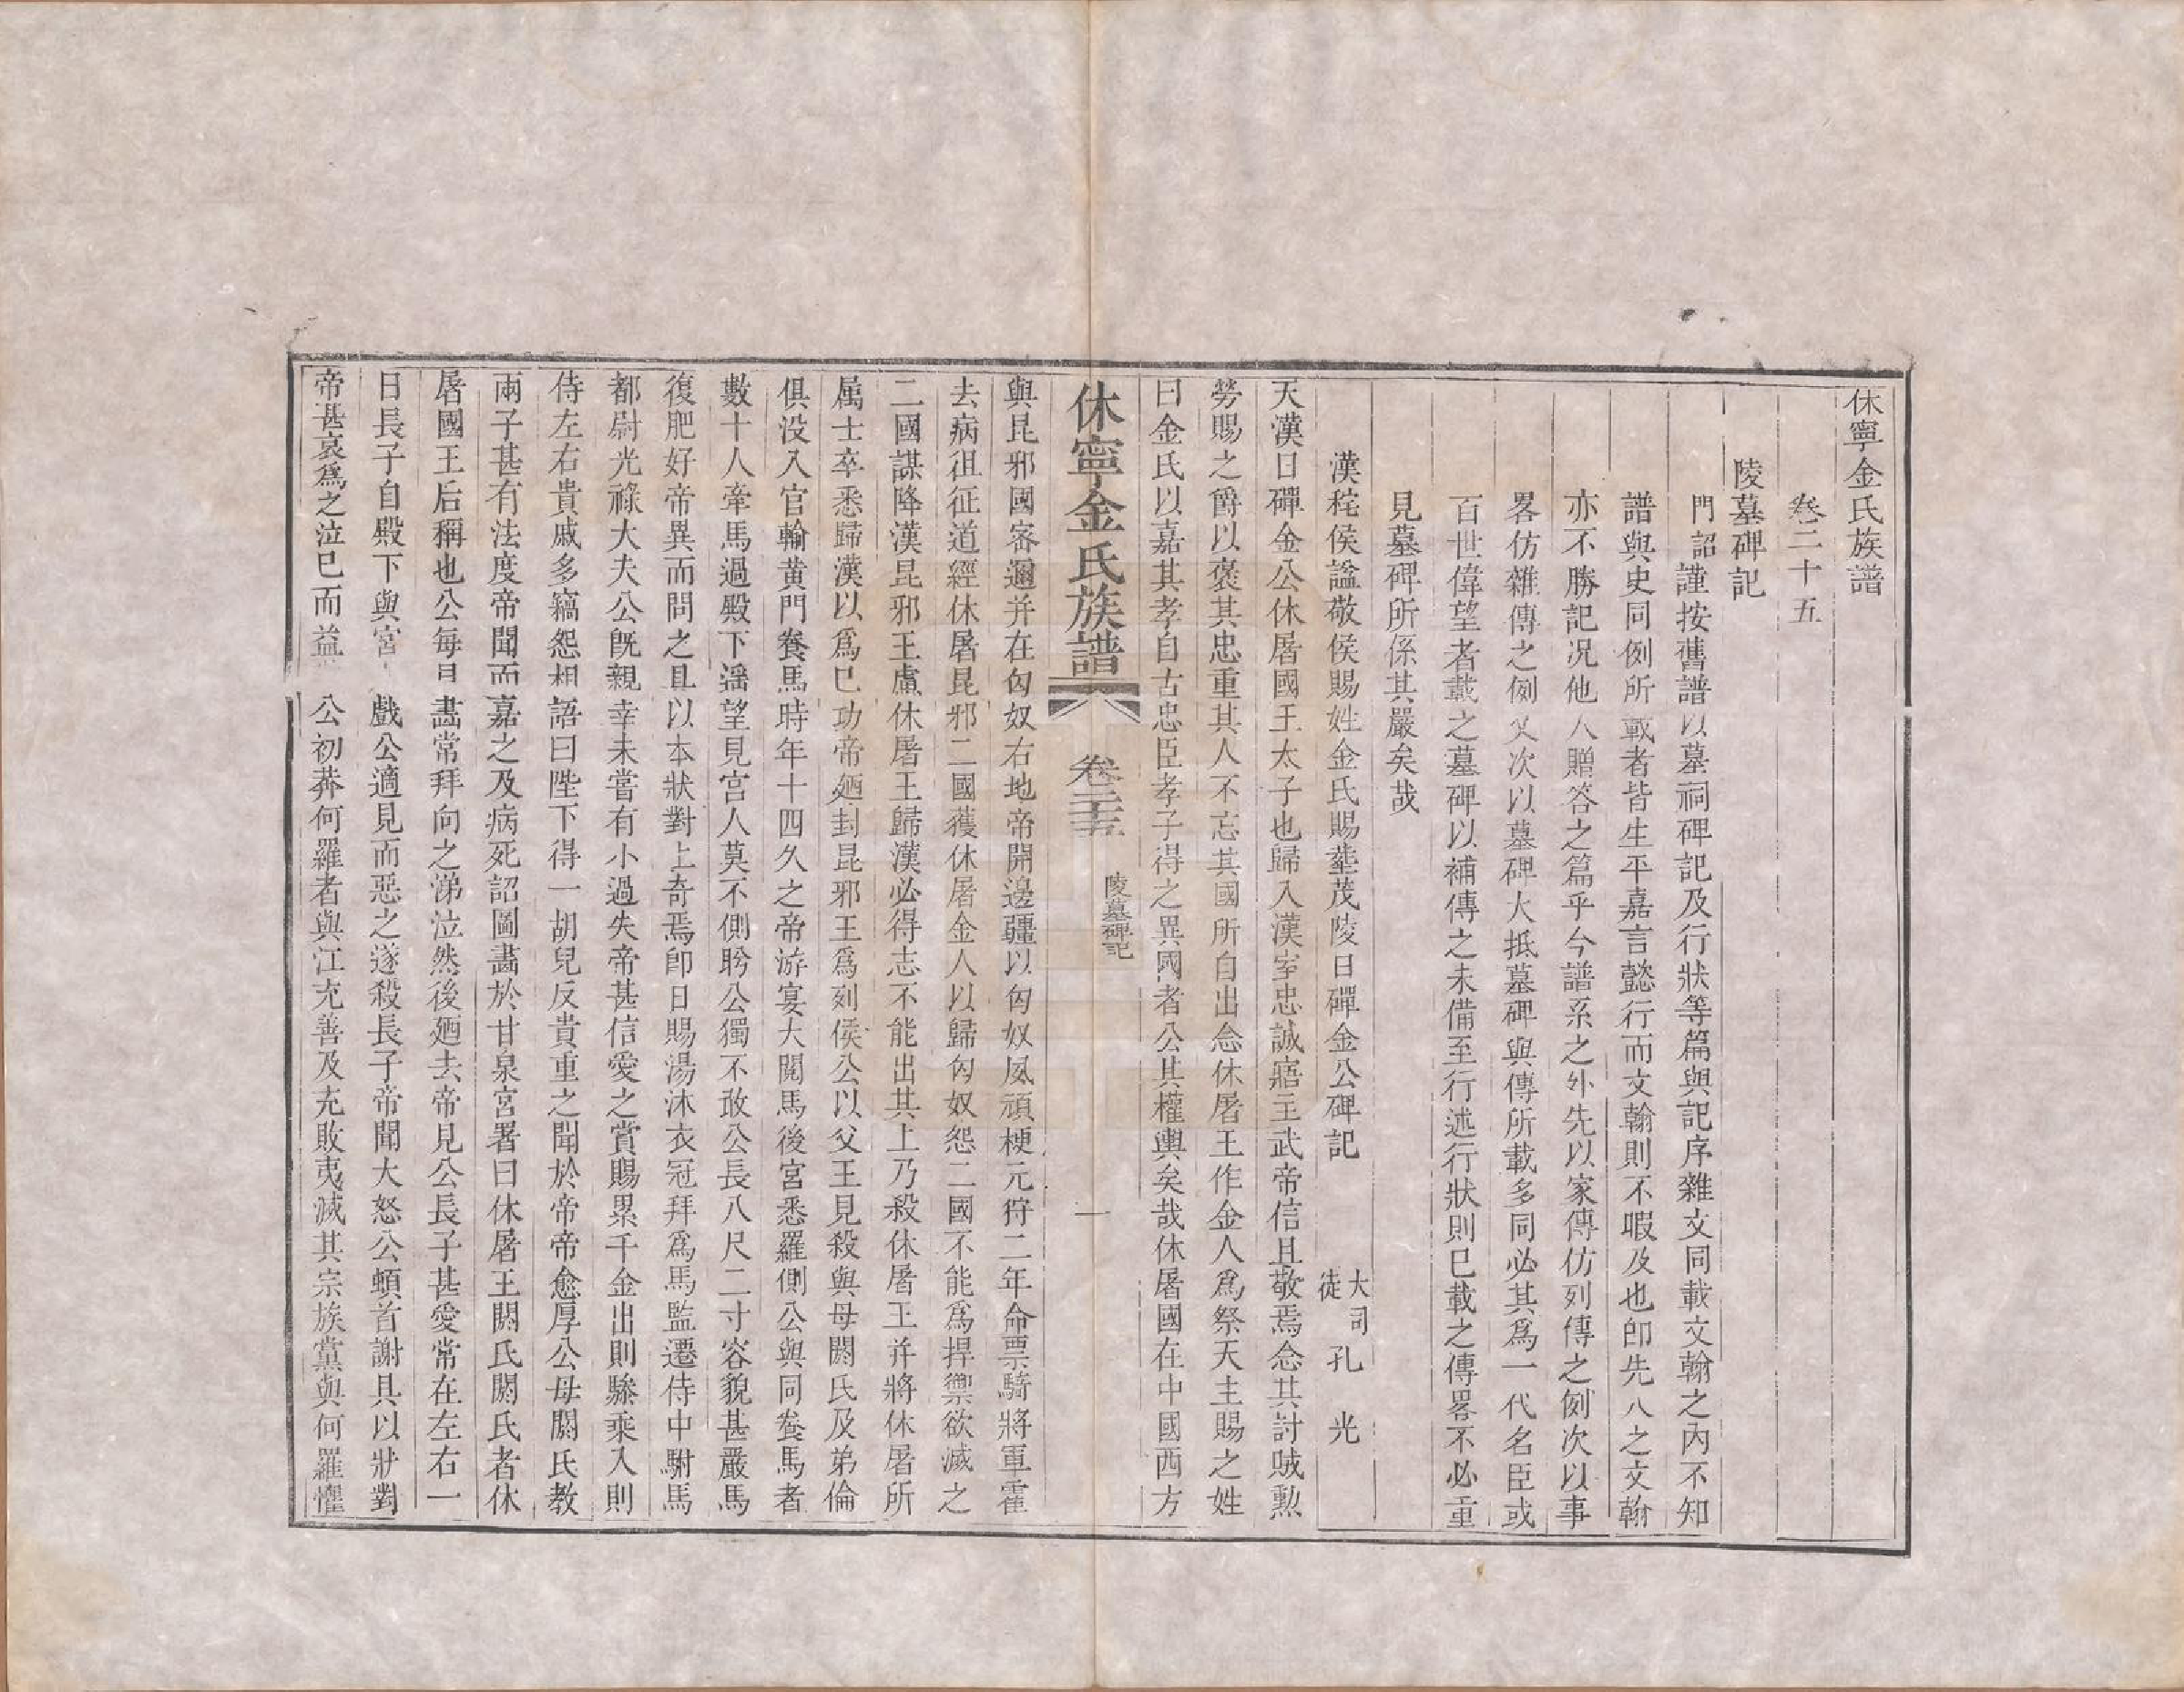 休寧金氏族譜
卷二十五
陵墓碑記
門詔謹按舊譜以墓祠碑記及行狀等篇與記序雜文同載文翰之內不知
譜與史同例所載者皆生平嘉言懿行而文翰則不暇及也卽先人之文翰
亦不勝記况他人贈答之篇乎今譜系之外先以家傳仿列傳之例次以事
畧仿雜傳之例又次以墓碑大抵墓碑與傳所載多同必其爲一代名臣或
百世偉望者載之墓碑以補傳之未備至行述行狀則已載之傳畧不必重
見墓碑所係其嚴矣哉
漢秺侯諡敬侯賜姓金氏賜塟茂陵日磾金公碑記 大司徒孔光
天漢日磾金公休屠國王太子也歸入漢室忠誠寤主武帝信且敬焉念其討賊勲
勞賜之爵以褒其忠重其人不忘其國所自出念休屠王作金人爲祭天主賜之姓
曰金氏以嘉其孝自古忠臣孝子得之異國者公其權輿矣哉休屠國在中國西方
休寧金氏族譜 卷二十五 陵墓碑記 一
與昆邪國密邇并在匈奴右地帝開邊疆以匈奴夙頑梗元狩二年命票騎將軍霍
去病徂征道經休屠昆邪二國獲休屠金人以歸匈奴怨二國不能爲捍禦欲滅之
二國謀降漢昆邪王慮休屠王歸漢必得志不能出其上乃殺休屠王并將休屠所
属士卒悉歸漢以爲已功帝廼封昆邪王爲列侯公以父王見殺與母閼氏及弟倫
俱没入官輸黄門養馬時年十四久之帝游宴大閱馬後宮悉羅側公與同養馬者
數十人牽馬過殿下遥望見宮人莫不側盻公獨不敢公長八尺二寸容貌甚嚴馬
復肥好帝異而問之且以本狀對上奇焉卽日賜湯沐衣冠拜爲馬監遷侍中駙馬
都尉光祿大夫公旣親幸未嘗有小過失帝甚信愛之賞賜累千金出則驂乘入則
侍左右貴戚多竊怨相語曰陛下得一胡兒反貴重之聞於帝帝愈厚公母閼氏教
兩子甚有法度帝聞而嘉之及病死詔圖畵於甘泉宮署曰休屠王閼氏閼氏者休
屠國王后稱也公每見畵常拜向之涕泣然後廼去帝見公長子甚愛常在左右一
日長子自殿下與宮人戲公適見而惡之遂殺長子帝聞大怒公頓首謝具以狀對
帝甚哀爲之泣已而益公初莽何羅者與江充善及充敗夷滅其宗族黨與何羅懼